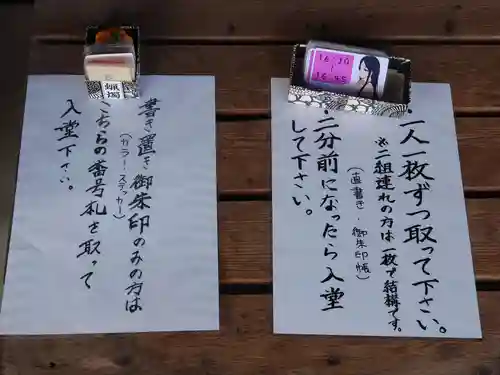 一人一枚ずつ取って下さい。
※二組連れの方は一枚で結構です。
(直書き・御朱印帳)
二分前になったら入堂
して下さい。
書き置き御朱印のみの方は
(カラーステッカー)
こちらの番号札を取って
入堂下さい。
蝋燭
16:30
16:45